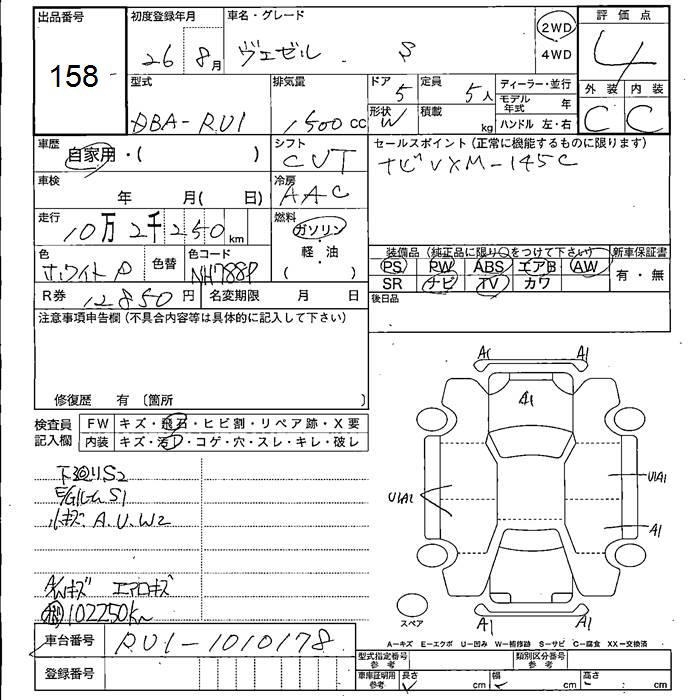 出品番号
158
初度登録年月
26 8月
車名・グレード
ヴェゼル S
2WD
4WD
評価点
4
外装 内装
C C
型式
DBA-RU1
排気量
1500cc
ドア 5
形状 W
定員 5人
積載 kg
ディーラー・並行
モデル年式 年
ハンドル 左・右
車歴
自家用・( )
シフト
CVT
セールスポイント(正常に機能するものに限ります)
ナビVXM-145C
車検 年 月( 日)
冷房
AAC
走行
10万2千250km
燃料
ガソリン
軽・油
( )
色
ホワイトP
色替
色コード
NH788P
装備品(純正品に限り○をつけて下さい)
PS PW ABS エアB AW
SR ナビ TV カワ
新車保証書
有・無
R券 12850円
名変期限 月 日
後日品
注意事項申告欄(不具合内容等は具体的に記入して下さい)
修復歴 有〔箇所 〕
検査員記入欄
FW キズ・飛石・ヒビ割・リペア跡・X要
内装 キズ・汚れ・コゲ・穴・スレ・キレ・破レ
下廻りS2
E/GルームS1
小キズ A.U.W2
A/Wキズ エアロキズ
102250Km
A1 A1
A1
U1A1
U1A1
A1
A1 A1
スペア
A-キズ E-エクボ U-凹み W-補修跡 S-サビ C-腐食 XX-交換済
車台番号 RU1-1010178
登録番号
型式指定番号 参考
類別区分番号 参考
車庫証明用 参考
長さ cm 幅 cm 高さ cm